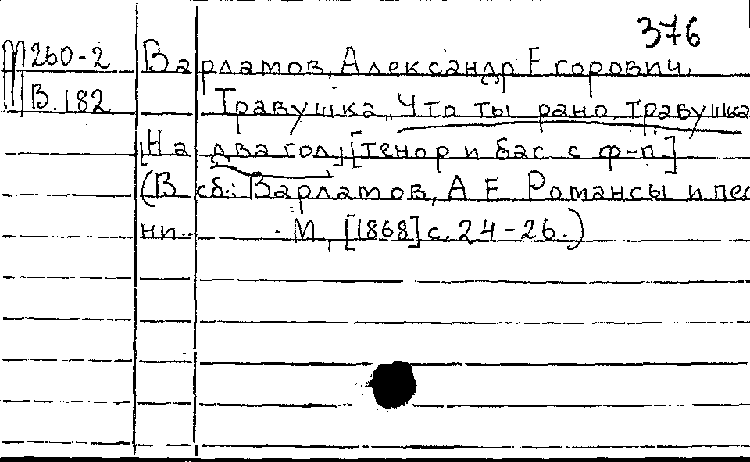 376
М260-2 Варламов, Александр Егорович.
В 182 Травушка. Что ты рано, травушка
[На два гол.] [тенор и бас с ф-п.]
(В сб.: Варламов, А. Е. Романсы и пес
ни. М., [1868] с. 24-26.)